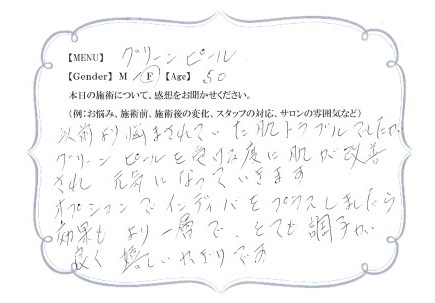 【MENU】 グリーンピール
【Gender】 M F 【Age】 50
本日の施術について、感想をお聞かせください。
(例：お悩み、施術前、施術後の変化、スタッフの対応、サロンの雰囲気など)
以前より悩まされていた肌トラブルでしたが
グリーンピールを受ける度に肌が改善
され 元気になっていきます
オプションでインディバをプラスしましたら
効果も より一層で、とても調子が
良く 嬉しいかぎりです